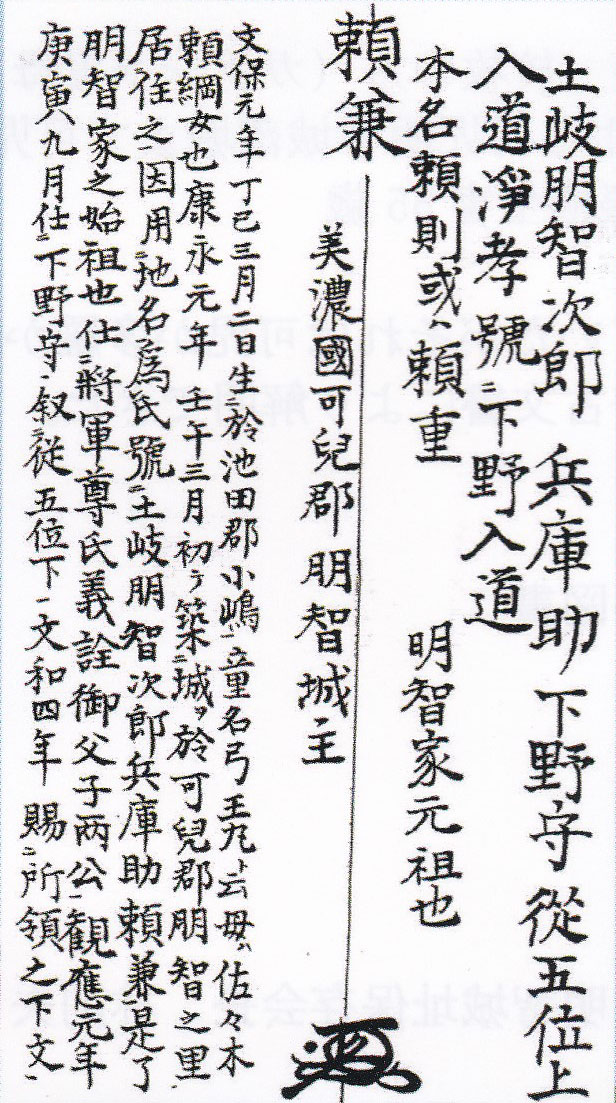 土岐明智次郎 兵庫助 下野守 從五位上
入道淨孝號ニ下野入道
本名頼則或ハ頼重 明智家元祖也
頼兼 美濃國可兒郡明智城主
文保元年丁巳三月二日生ニ於池田郡小嶋ニ童名弓王丸ト云母ハ佐々木
頼綱女也康永元年壬午三月初テ築ニ城ヲ於可兒郡明智之里
居住之因用地名ヲ爲氏號ニ土岐明智次郎兵庫助頼兼是了
明智家之始祖也仕ニ將軍尊氏義詮御父子兩公ニ観應元年
庚寅九月仕ニ下野守ニ叙ニ従五位下ニ文和四年賜ニ所領之下文ニ